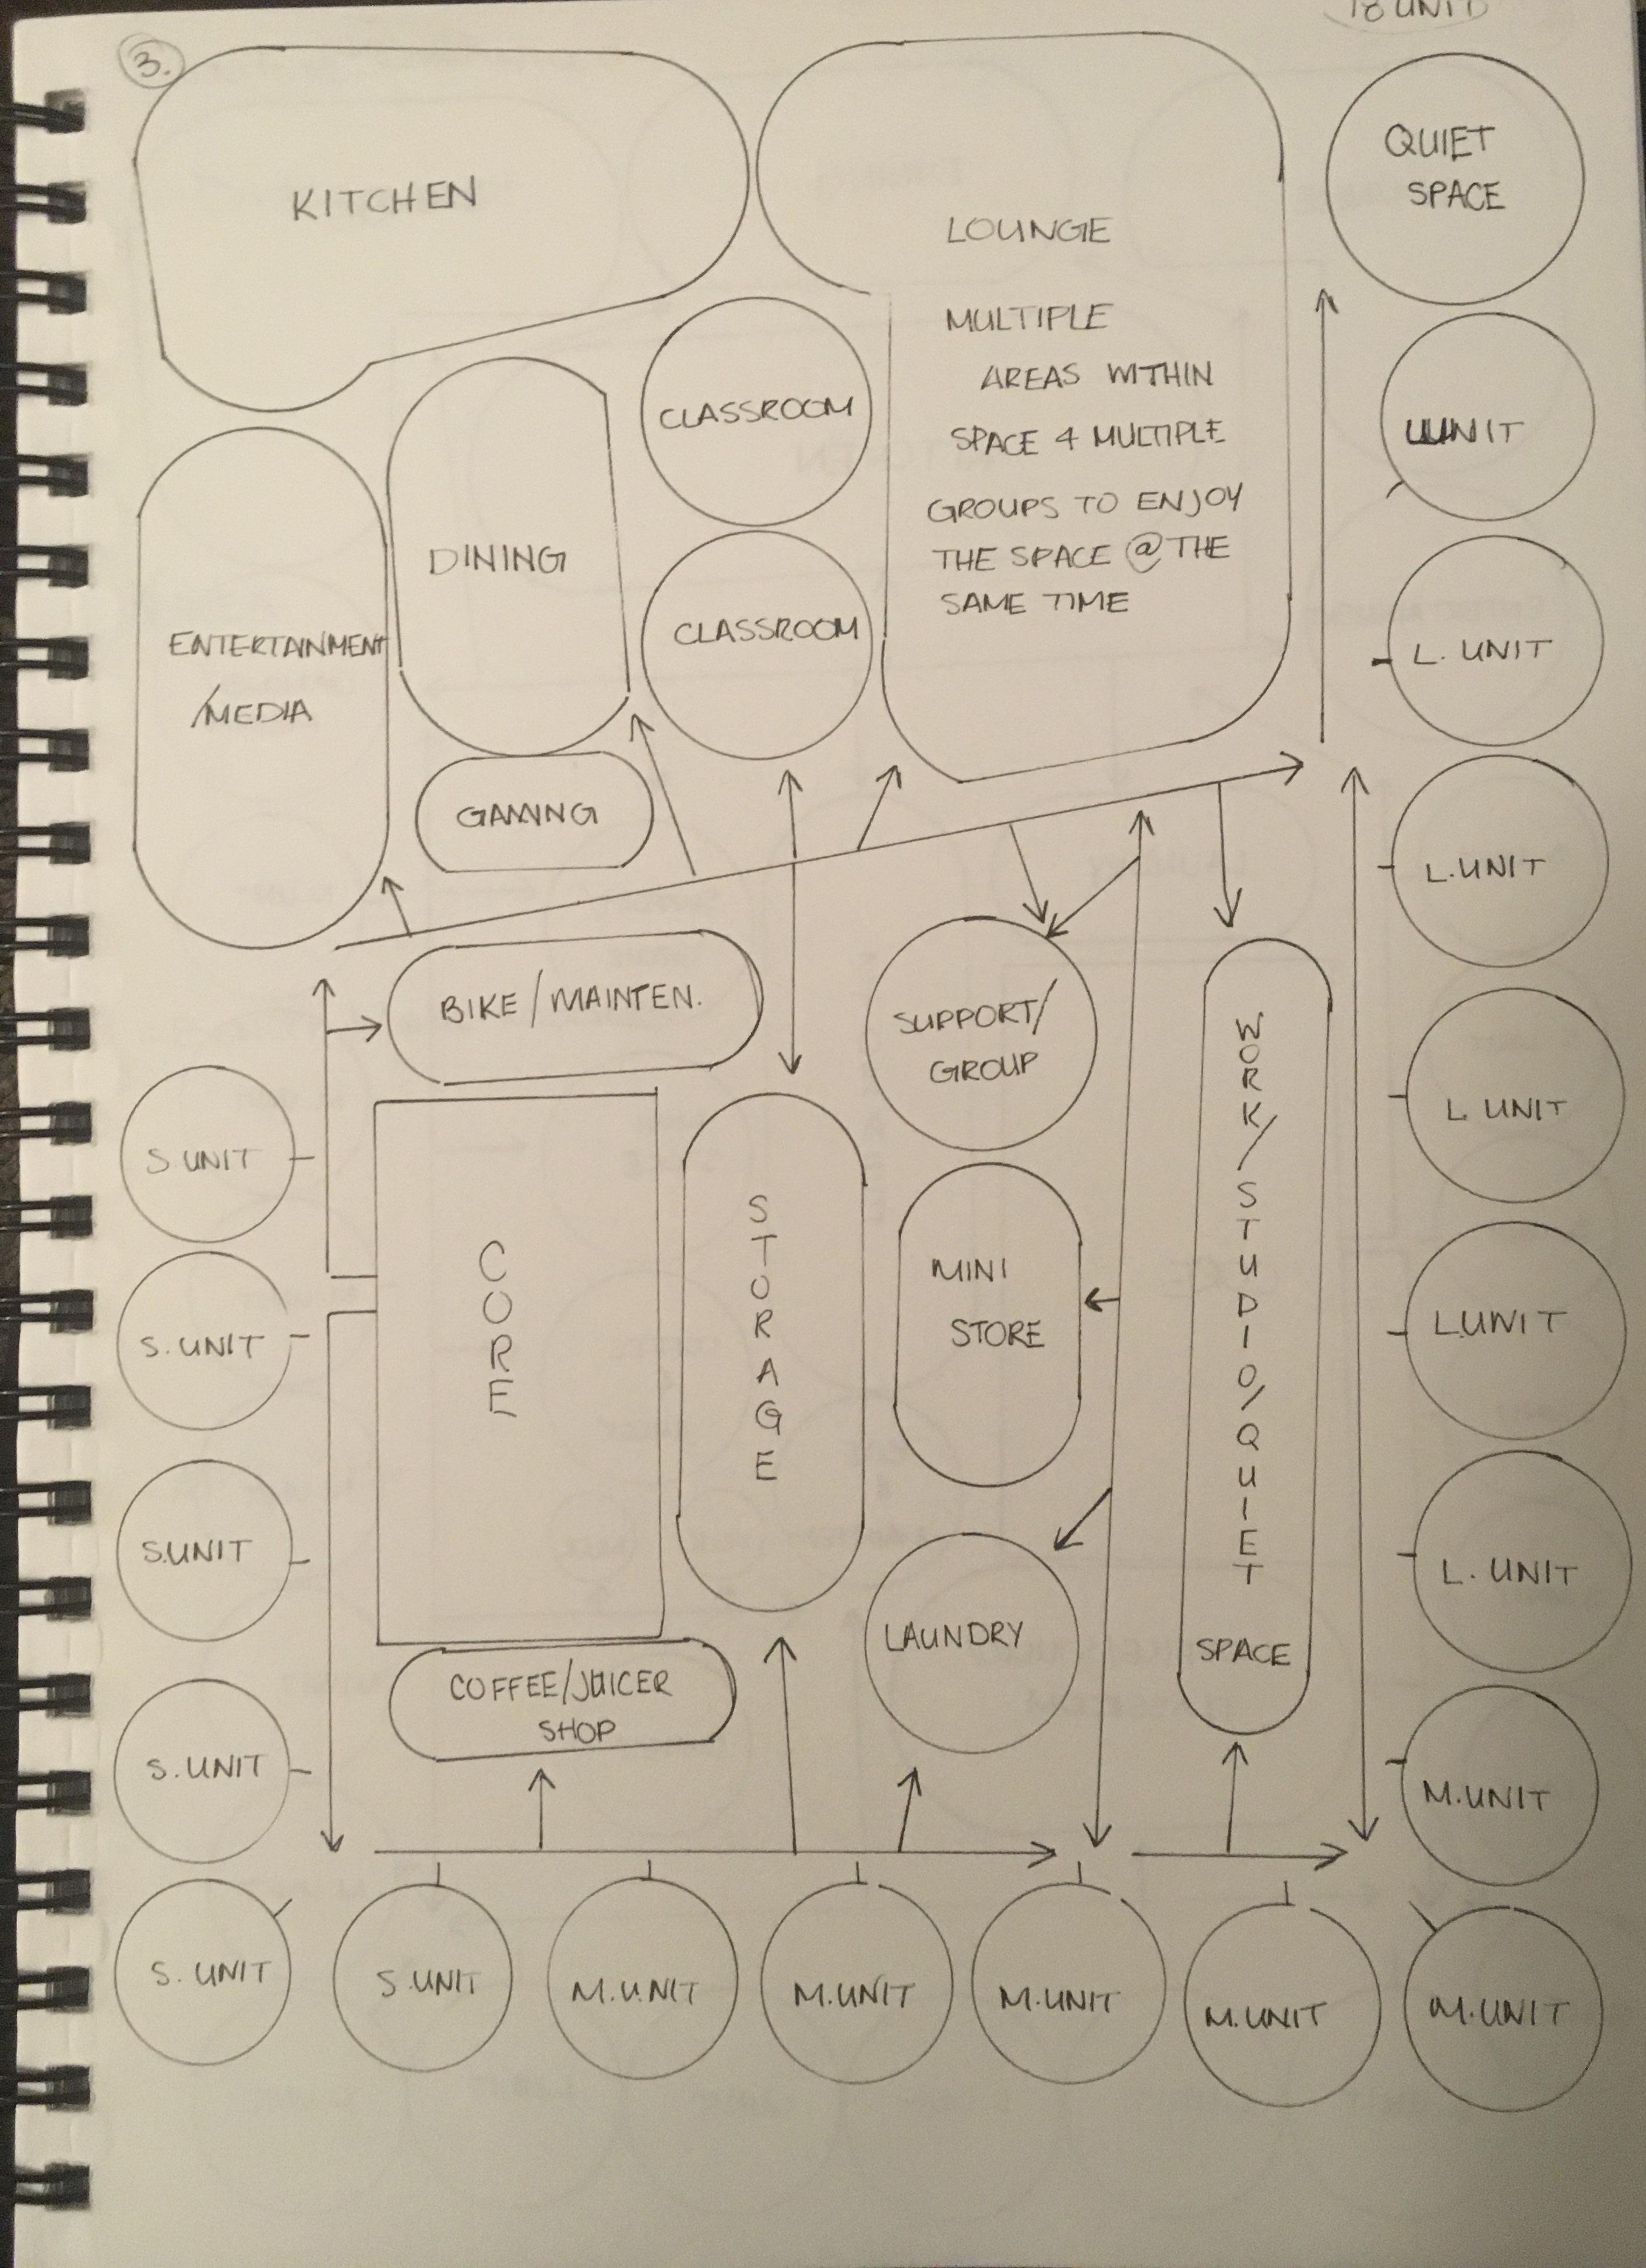 3.
18 UNIT
KITCHEN
LOUNGE
MULTIPLE
AREAS WITHIN
SPACE 4 MULTIPLE
GROUPS TO ENJOY
THE SPACE @ THE
SAME TIME
QUIET
SPACE
CLASSROOM
CLASSROOM
DINING
ENTERTAINMENT
/MEDIA
GAMING
UNIT
L. UNIT
L.UNIT
L UNIT
L.UNIT
L. UNIT
M.UNIT
BIKE/MAINTEN.
SUPPORT/
GROUP
WORK/STUDIO/QUIET
SPACE
CORE
STORAGE
MINI
STORE
LAUNDRY
COFFEE/JUICER
SHOP
S UNIT
S. UNIT
S.UNIT
S. UNIT
S. UNIT
S.UNIT
M.UNIT
M.UNIT
M.UNIT
M.UNIT
M.UNIT